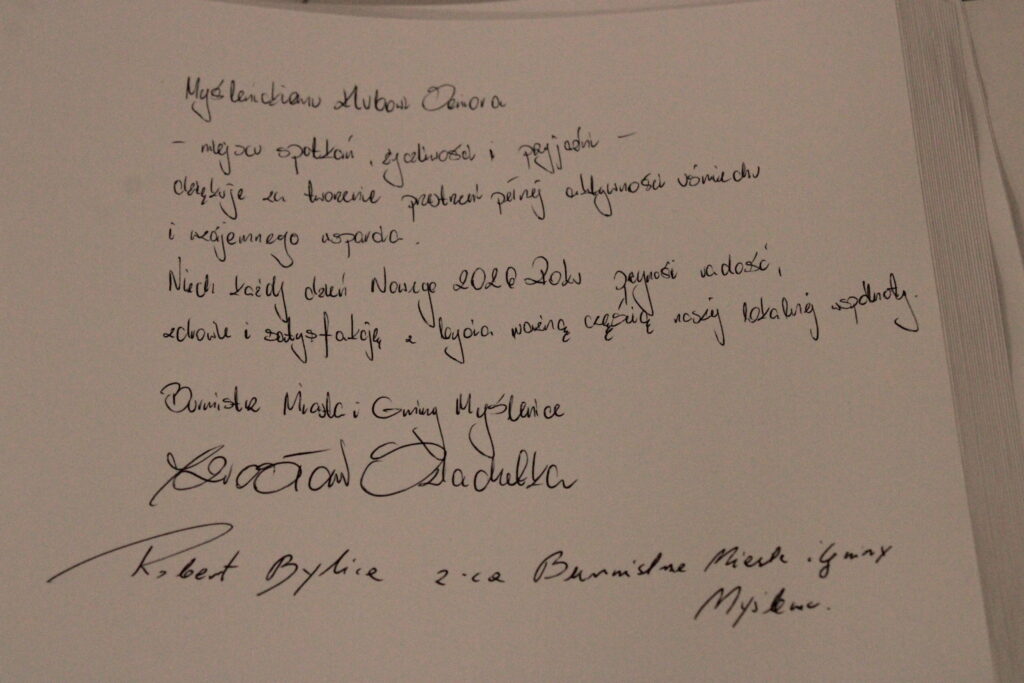 Myślenickiemu Klubowi Seniora
– miejscu spotkań, życzliwości i przyjaźni –
dziękuję za tworzenie przestrzeń pełnej aktywności uśmiechu
i wzajemnego wsparcia.
Niech każdy dzień Nowego 2026 Roku przynosi radość,
zdrowie i satysfakcję z bycia ważną częścią naszej lokalnej wspólnoty.
Burmistrz Miasta i Gminy Myślenice
Jarosław Szlachetka
Robert Bylica z-ca Burmistrza Miasta i Gminy
Myślenice